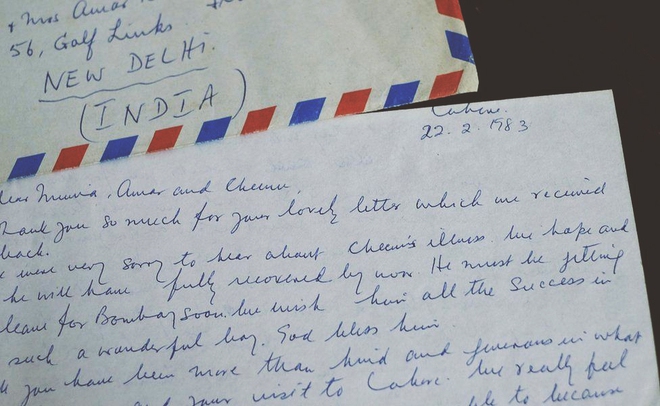 + Mrs Amar
56, Golf Links
NEW DELHI.
(INDIA)
Lahore.
22.2.1983
Dear Munia, Amar and Cheenu,
Thank you so much for your lovely letter which we received
back.
We were very sorry to hear about Cheenu's illness. We hope and
he will have fully recovered by now. He must be getting
leave for Bombay soon. We wish him all the success in
such a wonderful boy. God bless him.
you have been more than kind and generous in what
your visit to Lahore. We really feel
to because